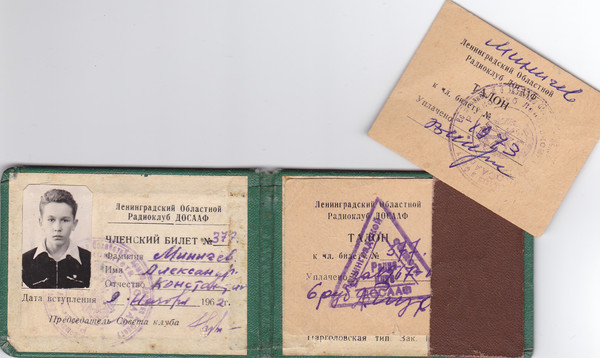 Миничев
Ленинградский Областной
Радиоклуб ДОСААФ
ТАЛОН
к чл. билету №
Уплачено 1973
Ленинградский Областной
Радиоклуб ДОСААФ
ЧЛЕНСКИЙ БИЛЕТ № 377
Фамилия Миничев
Имя Александр
Отчество
Дата вступления 9 Ноября 1962 г.
Председатель Совета клуба
Ленинградский Областной
Радиоклуб ДОСААФ
ТАЛОН
к чл. билету № 377
Уплачено
6 руб
Ленинградский
Радио
ДОСААФ
Парголовская тип. Зак.